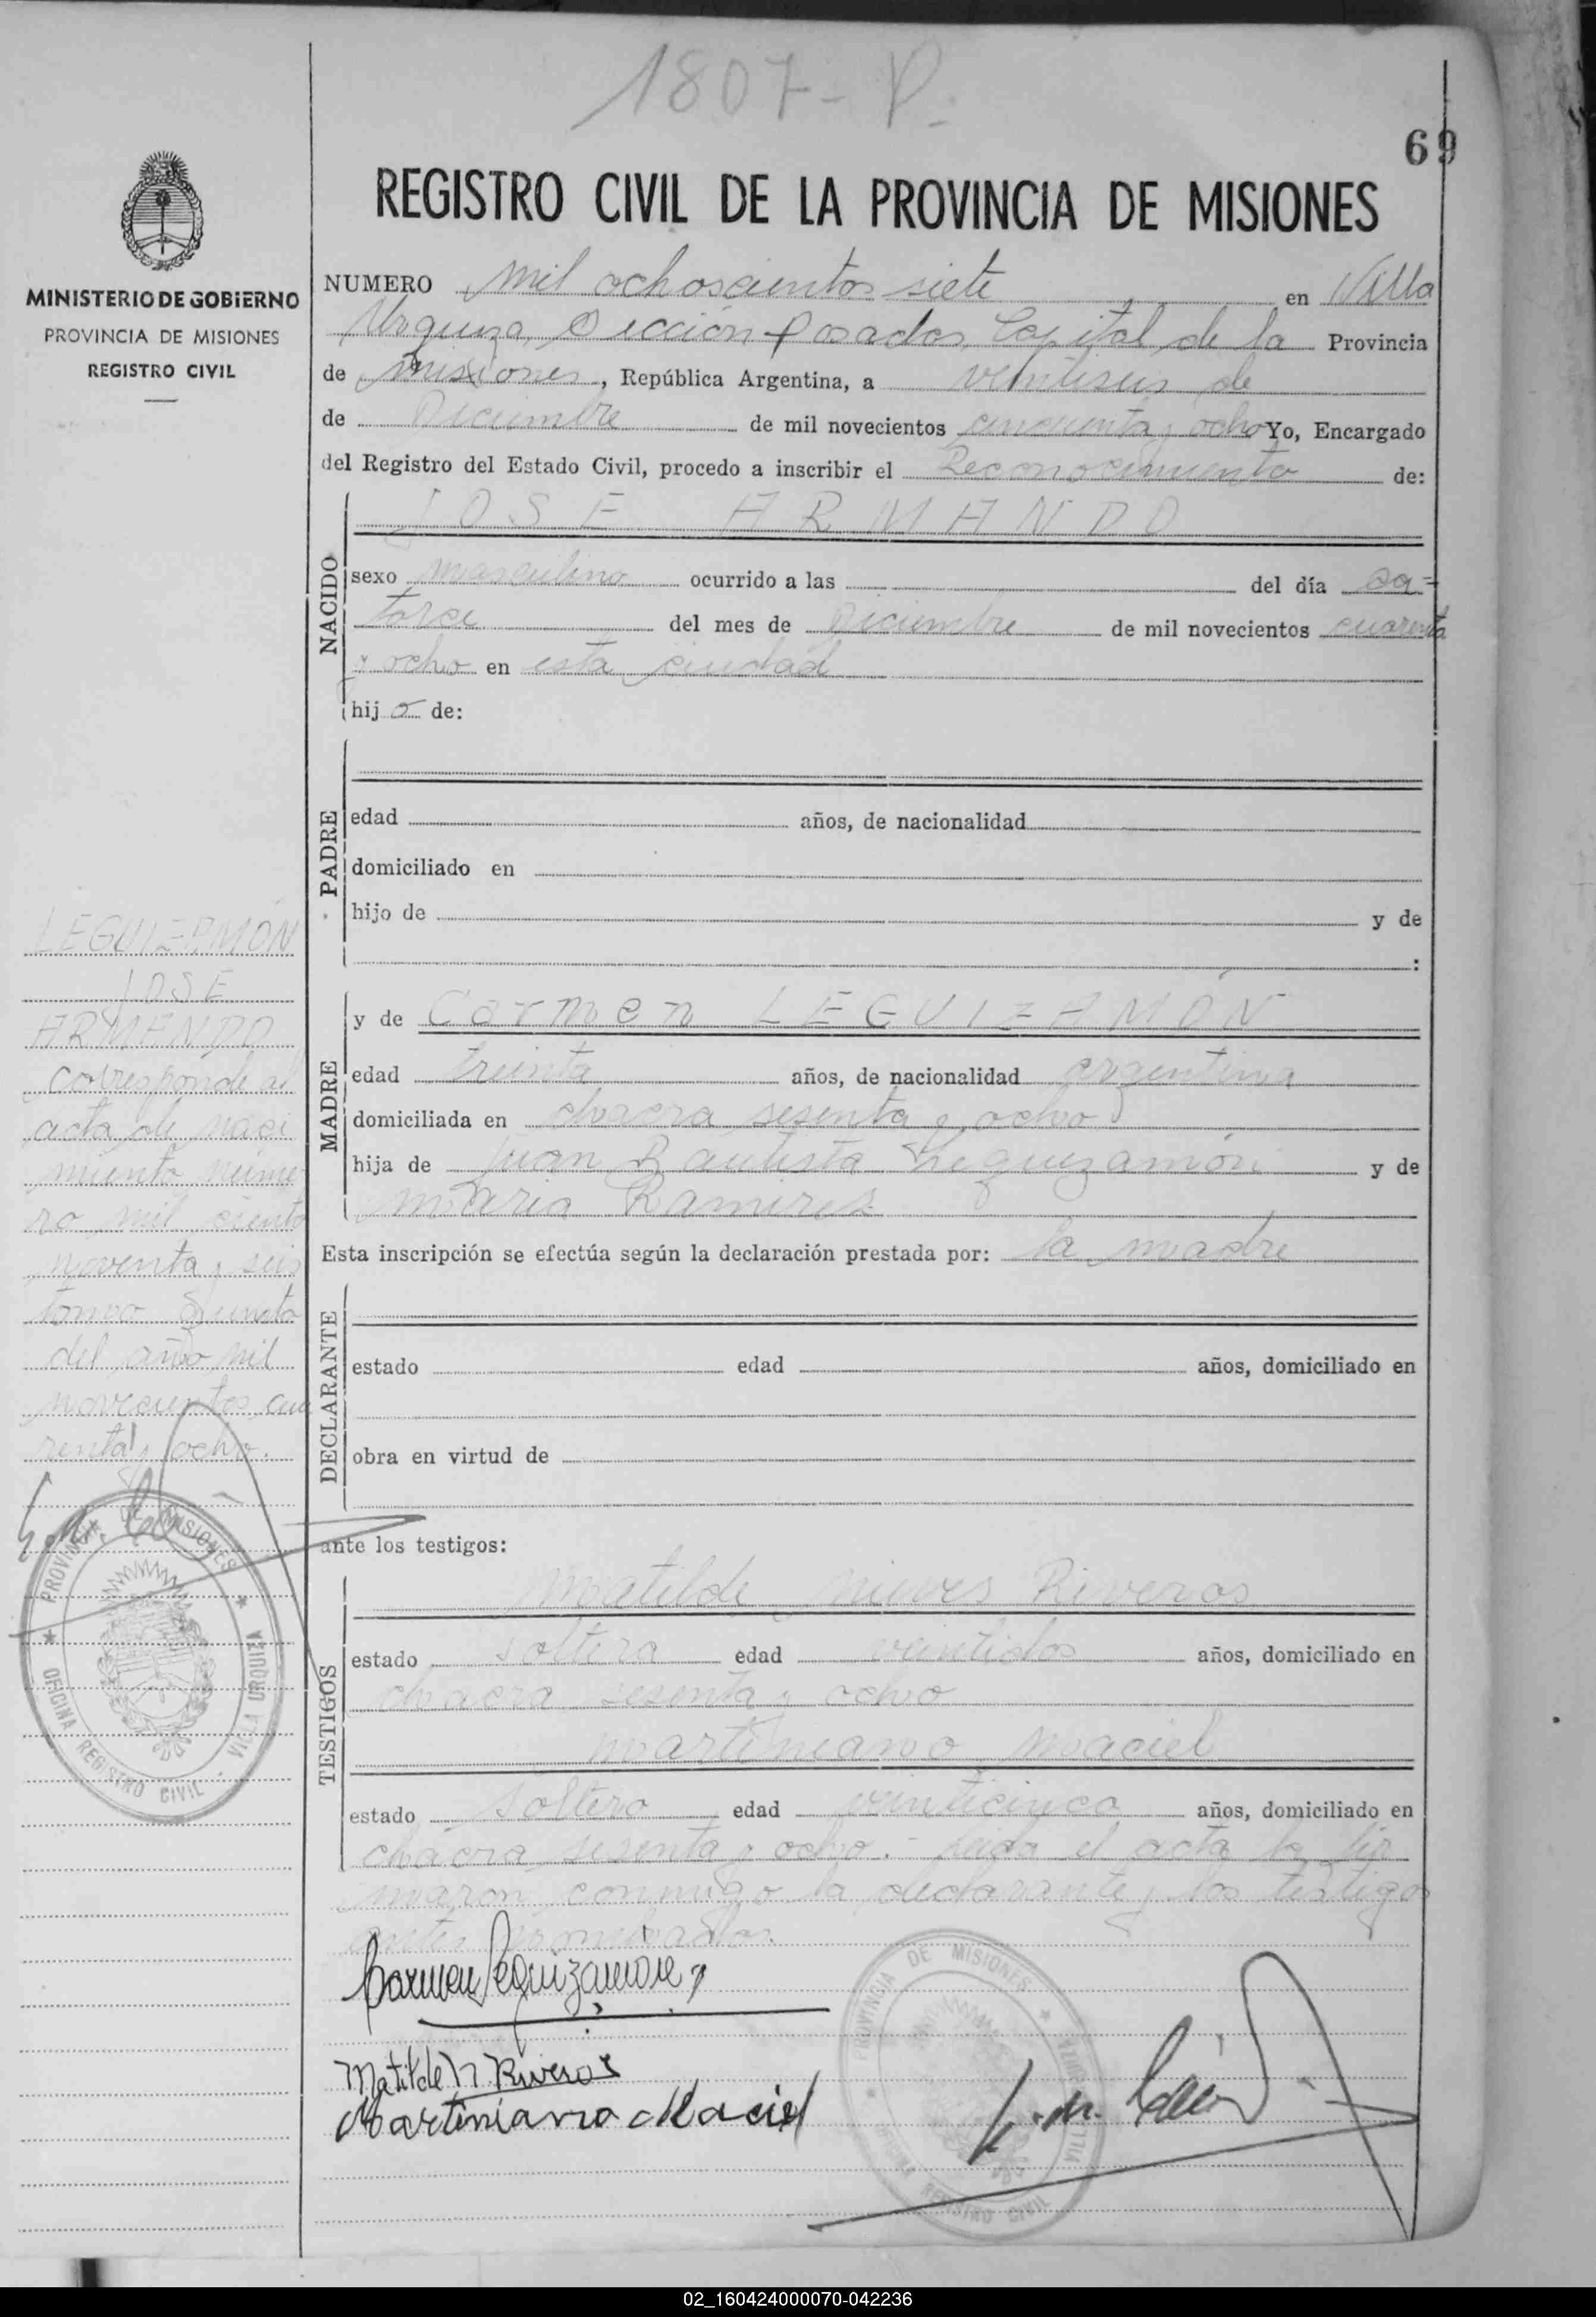 1807-P.
69
MINISTERIO DE GOBIERNO
PROVINCIA DE MISIONES
REGISTRO CIVIL
REGISTRO CIVIL DE LA PROVINCIA DE MISIONES
NUMERO mil ochoscientos siete en Villa
Urquiza, Sección Posadas, Capital de la Provincia
de Misiones, República Argentina, a veintiseis de
de Diciembre de mil novecientos cincuenta y ocho Yo, Encargado
del Registro del Estado Civil, procedo a inscribir el Reconocimiento de:
NACIDO
JOSE ARMANDO
sexo masculino ocurrido a las del día ca-
torce del mes de Diciembre de mil novecientos cuarenta
y ocho en esta ciudad
hijo de:
PADRE
edad años, de nacionalidad
domiciliado en
hijo de y de
:
MADRE
y de Carmen LEGUIZAMÓN
edad treinta años, de nacionalidad argentina
domiciliada en chacra sesenta y ocho
hija de Juan Bautista Leguizamón y de
Maria Ramirez
Esta inscripción se efectúa según la declaración prestada por: la madre
DECLARANTE
estado edad años, domiciliado en
obra en virtud de
ante los testigos:
TESTIGOS
Matilde Nieves Riveros
estado soltera edad veintidos años, domiciliado en
chacra sesenta y ocho
Martiniano Maciel
estado soltero edad veinticinco años, domiciliado en
chacra sesenta y ocho.- Leida el acta la fir
maron conmigo la declarante y los testigos
antes nombrados.
Carmen Leguizamon
Matilde N. Riveros
Martiniano Maciel
PROVINCIA DE MISIONES
OFICINA REGISTRO CIVIL
VILLA URQUIZA
LEGUIZAMÓN
JOSE
ARMANDO
corresponde al
acta de naci
miento núme
ro mil ciento
noventa y seis
tomo Quinto
del año mil
novecientos cua
renta y ocho.
PROVINCIA DE MISIONES
OFICINA REGISTRO CIVIL - VILLA URQUIZA
02_160424000070-042236